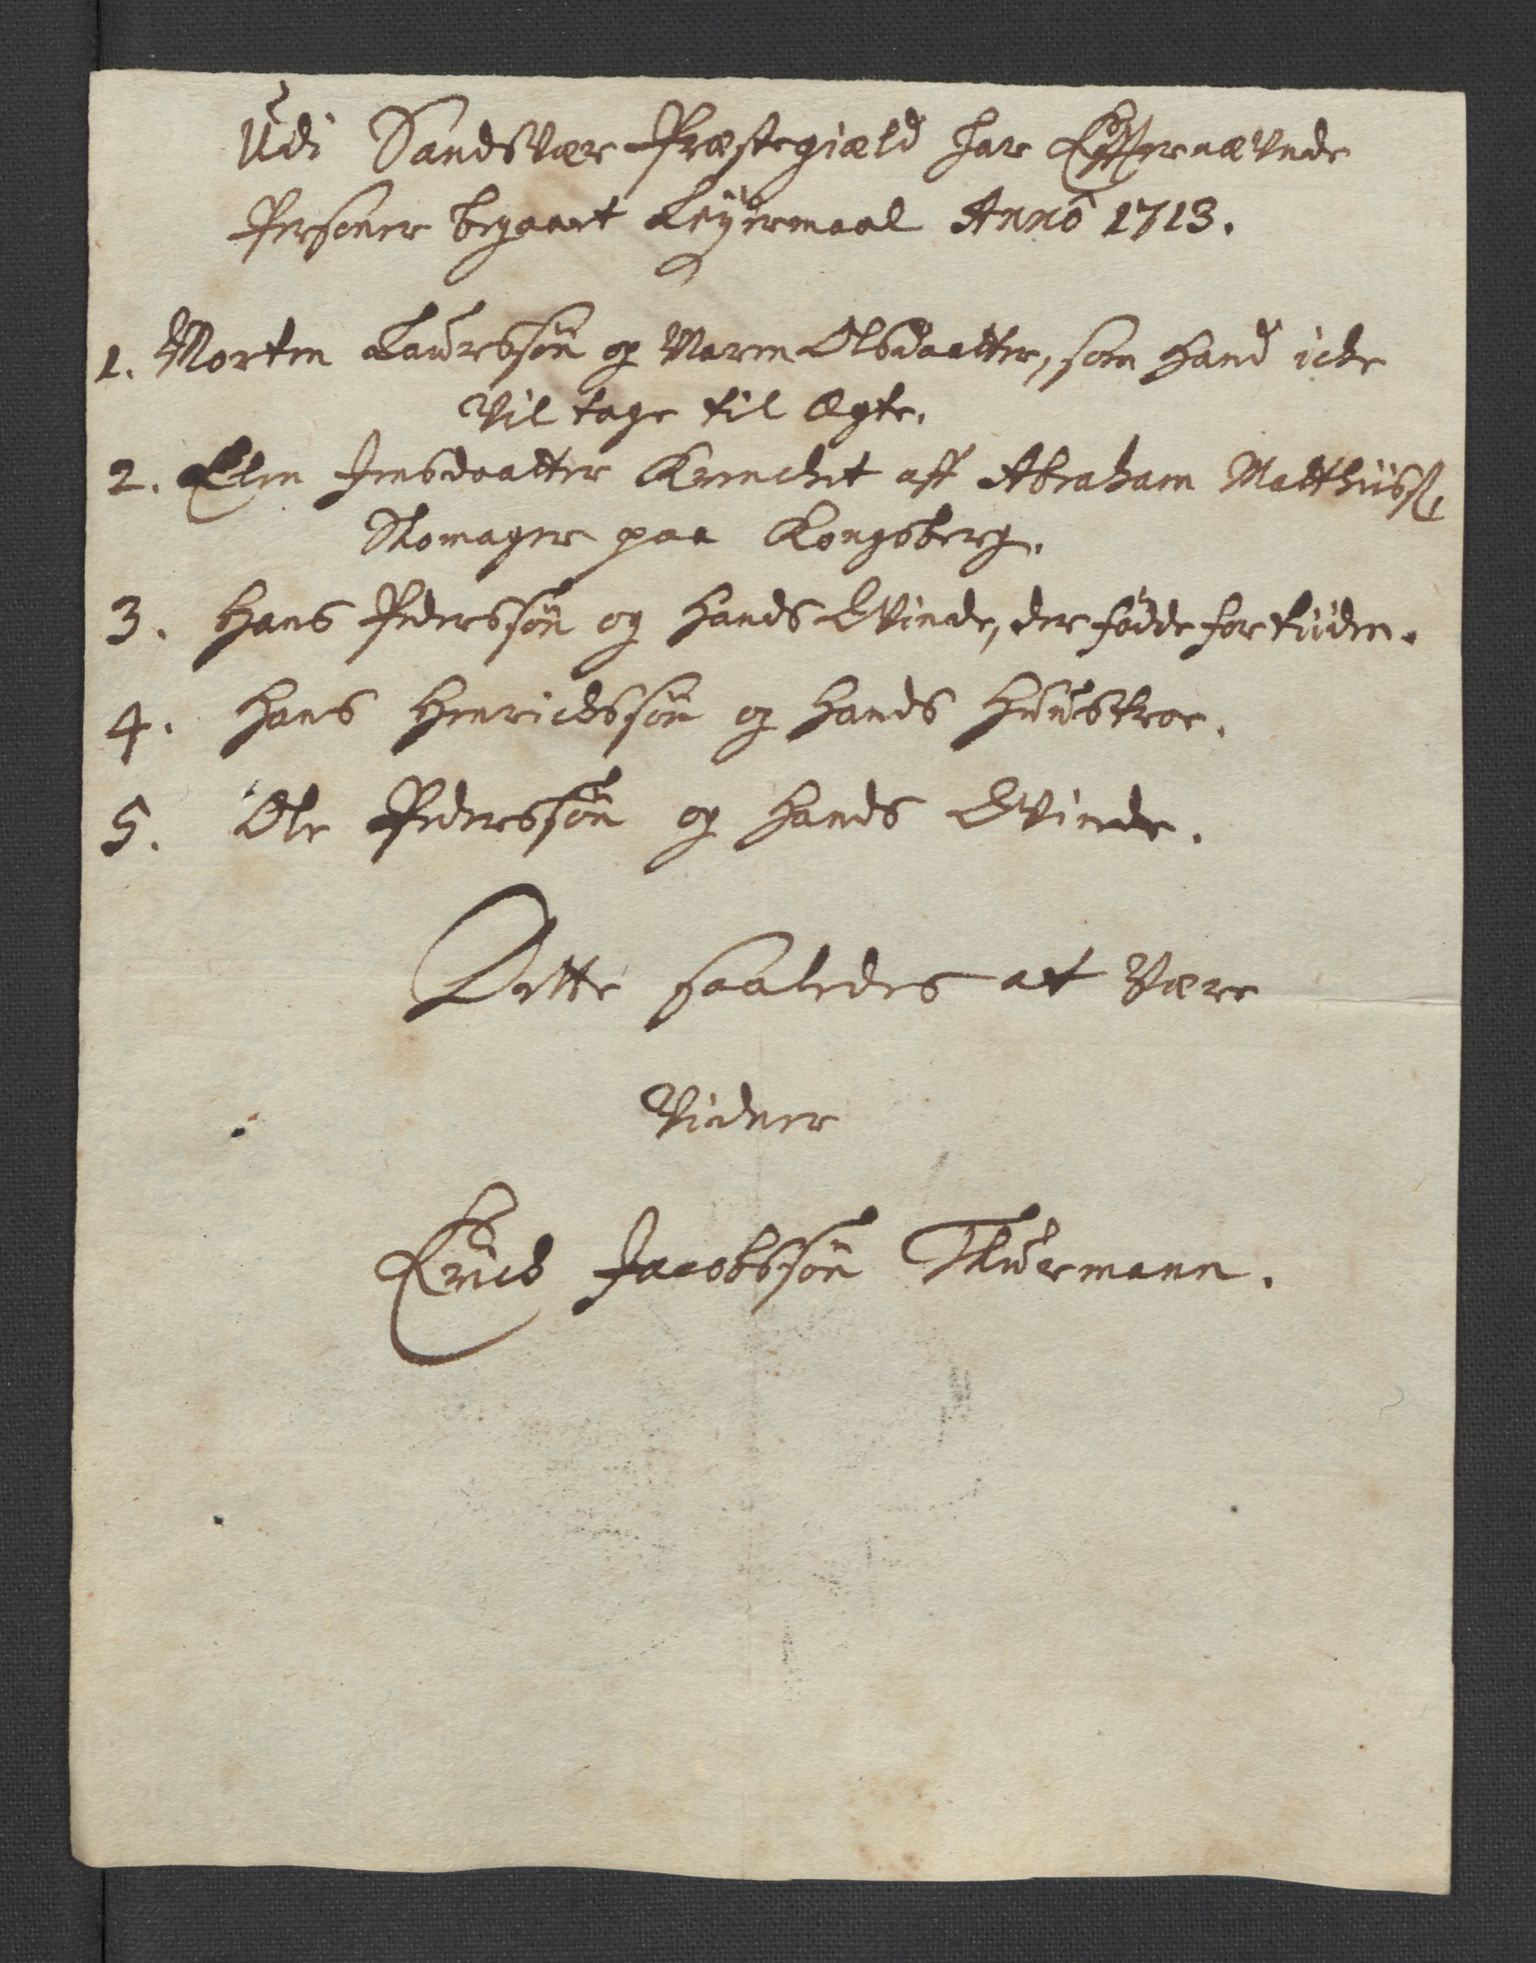 Udi Sandsvær Præstegiæld har Effternævnde
Personer begaaet Leÿermaal Anno 1713.
1. Morten Laurssøn og Maren Olsdaatter, som hand icke
vil tage til Ægte.
2. Elen Jensdaatter Krencket aff Abraham Matthiiss:
Skomager paa Kongsberg.
3. Hans Pederssøn og hands Qvinde, der fødde for tiiden.
4. Hans Henrichssøn og hands Huustroe.
5. Ole Pederssøn og hands Qvinde.
Dette saaledes at være
vidner
Erich Jacobssøn Thurmann.